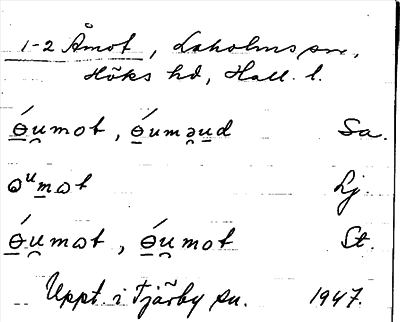 1-2 Åmot, Laholms sn,
Höks hd, Hall. l.
ɵ́u̯mot, ɵ́uməu̯d Sa.
ɷᵘmɷt Lj.
ɵ́u̯mɷt, ɵ́u̯mot St.
Uppt. i Tjärby sn. 1947.